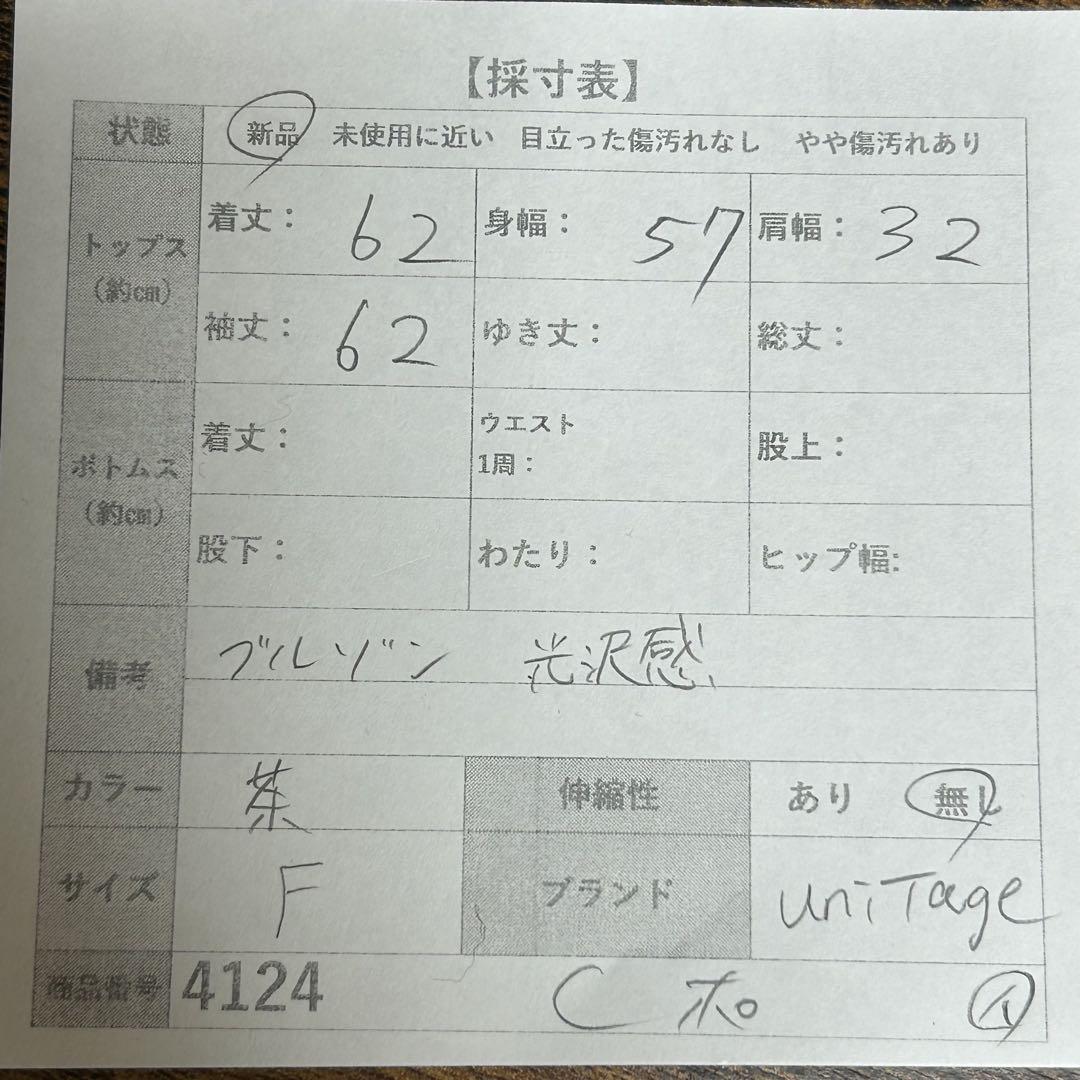 【採寸表】
状態 新品 未使用に近い 目立った傷汚れなし やや傷汚れあり
トップス(約cm) 着丈: 62 身幅: 57 肩幅: 32
袖丈: 62 ゆき丈: 総丈:
ボトムス(約cm) 着丈: ウエスト1周: 股上:
股下: わたり: ヒップ幅:
備考 ブルゾン 光沢感
カラー 茶 伸縮性 あり 無し
サイズ F ブランド uniTage
商品番号 4124 C ポ